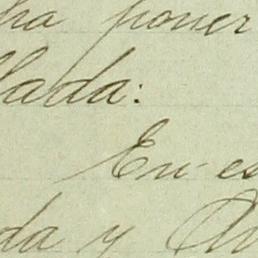 ha poner
llada:
En es
da y